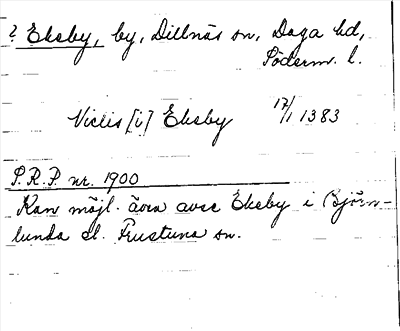 ? Eksby, by, Dillnäs sn, Daga hd,
Söderm. l.
Niclis [i] Eksby 17/1 1383
S.R.P. nr. 1900
Kan möjl. även avse Eksby i Björn-
lunda el. Frustuna sn.